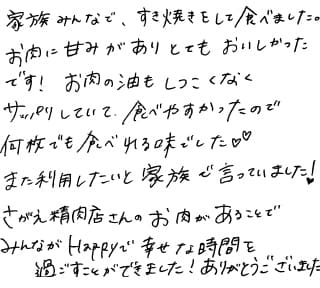 家族みんなで、すき焼きをして食べました。
お肉に甘みがありとてもおいしかった
です！ お肉の油もしつこくなく
サッパリしていて、食べやすかったので
何枚でも食べれる味でした♡♡
また利用したいと家族で言っていました！
さがえ精肉店さんのお肉があることで
みんながHappyで幸せな時間を
過ごすことができました！ありがとうございました